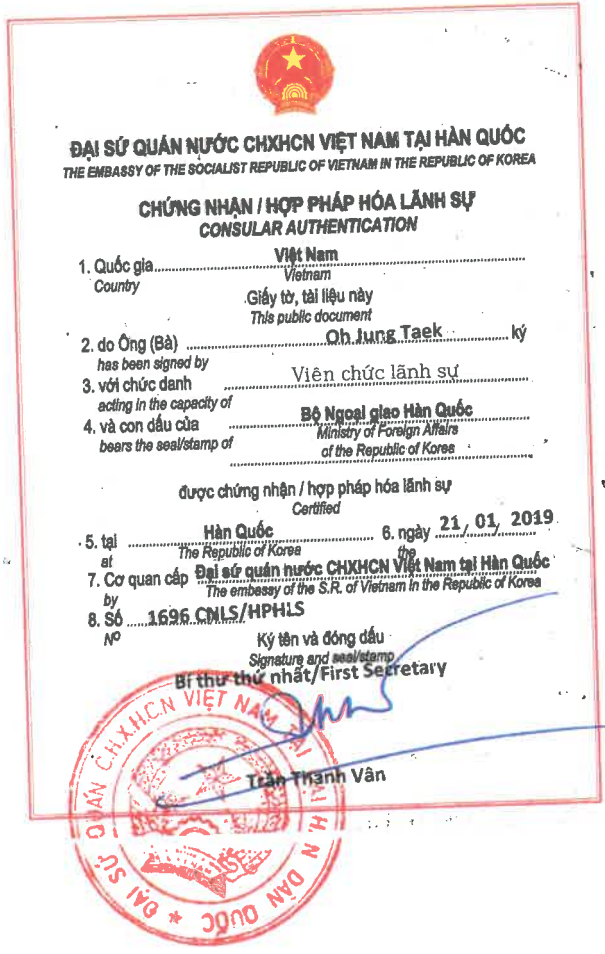 ĐẠI SỨ QUÁN NƯỚC CHXHCN VIỆT NAM TẠI HÀN QUỐC
THE EMBASSY OF THE SOCIALIST REPUBLIC OF VIETNAM IN THE REPUBLIC OF KOREA
CHỨNG NHẬN / HỢP PHÁP HÓA LÃNH SỰ
CONSULAR AUTHENTICATION
1. Quốc gia Việt Nam
Country Vietnam
Giấy tờ, tài liệu này
This public document
2. do Ông (Bà) Oh Jung Taek ký
has been signed by
3. với chức danh Viên chức lãnh sự
acting in the capacity of
4. và con dấu của Bộ Ngoại giao Hàn Quốc
bears the seal/stamp of Ministry of Foreign Affairs
of the Republic of Korea
được chứng nhận / hợp pháp hóa lãnh sự
Certified
5. tại Hàn Quốc 6. ngày 21/ 01/ 2019
at The Republic of Korea the
7. Cơ quan cấp Đại sứ quán nước CHXHCN Việt Nam tại Hàn Quốc
by The embassy of the S.R. of Vietnam in the Republic of Korea
8. Số 1696 CNLS/HPHLS
Nº
Ký tên và đóng dấu
Signature and seal/stamp
Bí thư thứ nhất/First Secretary
Trần Thanh Vân
ĐẠI SỨ QUÁN C.H.X.H.C.N VIỆT NAM TẠI ĐẠI H.N DÂN QUỐC